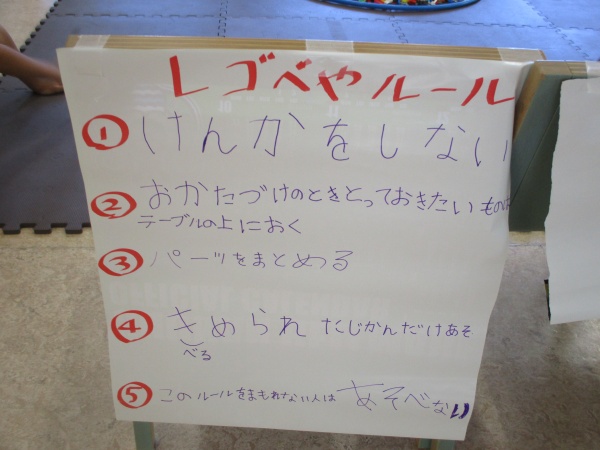 レゴべやルール
① けんかをしない
② おかたづけのときとっておきたいものは
テーブルの上におく
③ パーツをまとめる
④ きめられたじかんだけあそ
べる
⑤ このルールをまもれない人はあそべない